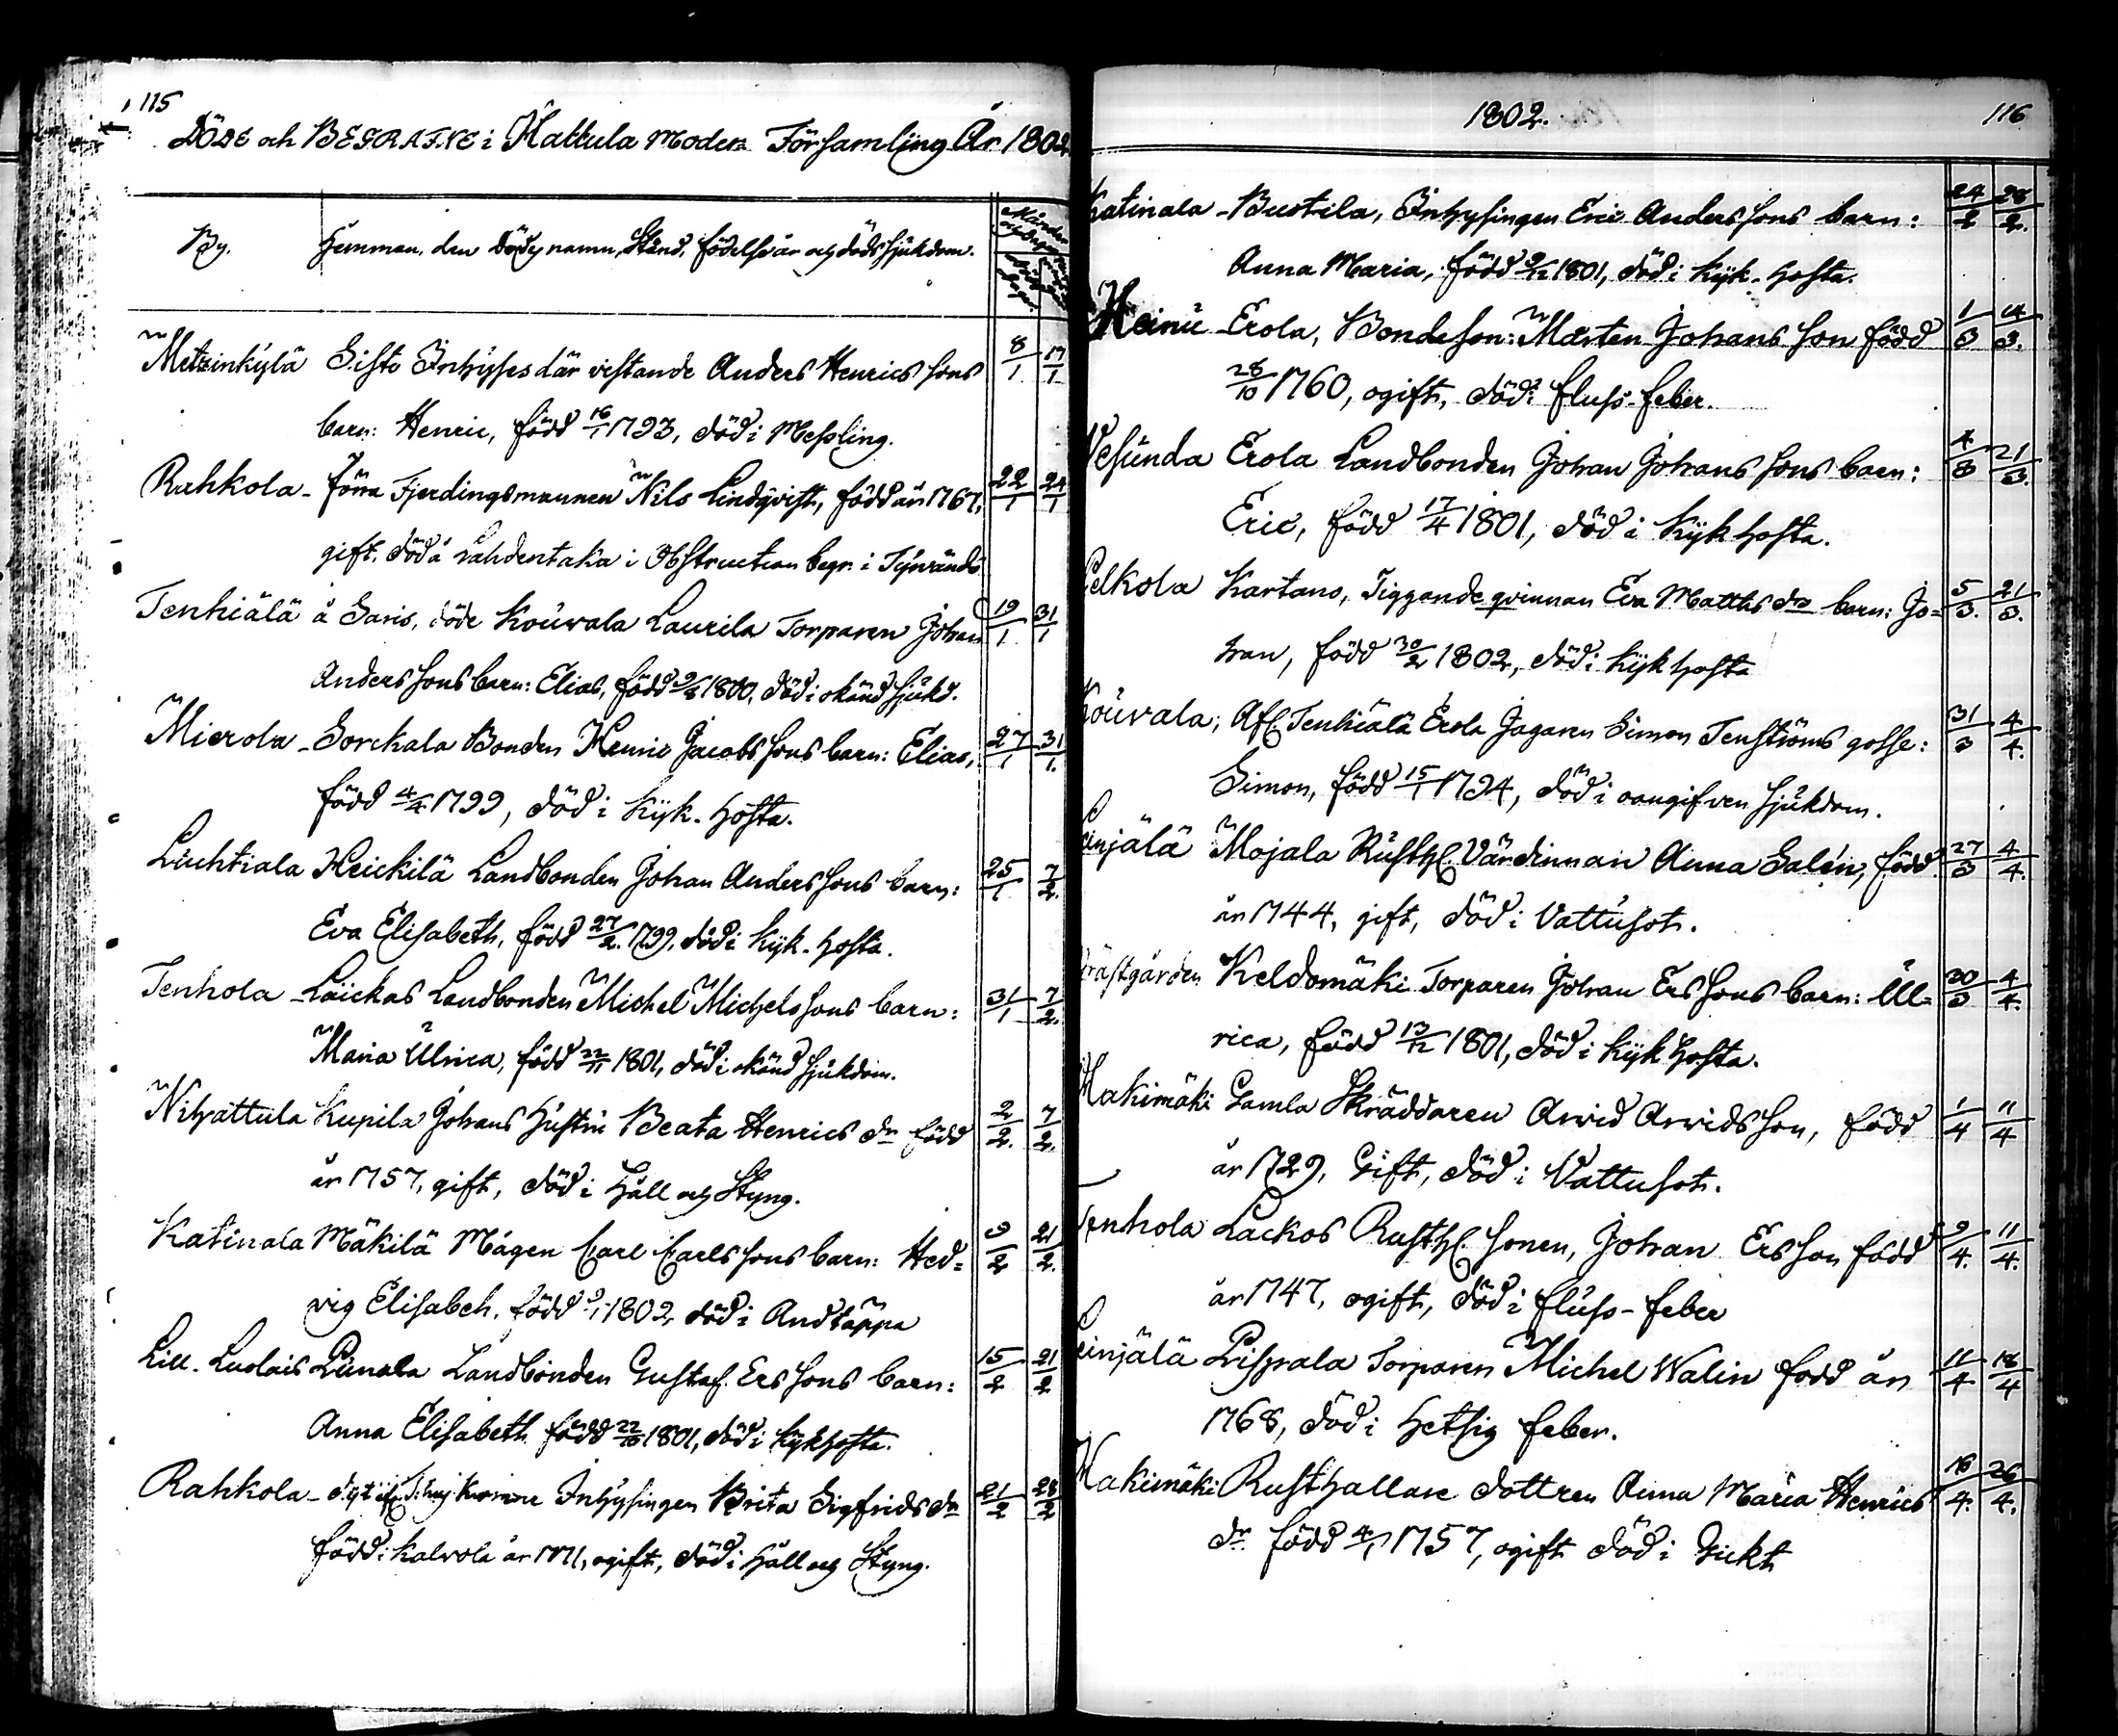 115
DÖDE och BEGRAFNE i Hattula Moder Församling År 1802
By. Hemman, den Dödes namn, Stånd, födelse år och döds sjukdom.
Metzinkylä Siste Inhyses där vistande Anders Henrics sons 8/1 17/1
barn: Henric, född 16/1 1793, död i Messling.
Rahkola - förra Fjerdingsmannen Nils Lindqvist, född år 1767, 22/1 24/1
gift, död å Lahdentaka i Obstruction begr. i Tyrvändö
Tenhiälä å Saris, döde Kouvala Laurila Torparen Johan 19/1 31/1
Anders sons barn: Elias, född 1800, död i okänd sjukd.
Mierola - Sorckala Bonden Henric Jacobs sons barn: Elias, 27/1 31/1.
född 4/4 1799, död i kik-hosta.
Luhtiala Heickilä Landbonden Johan Anders sons barn: 25/1 7/2.
Eva Elisabeth, född 27/2. 1799, död i kik-hosta.
Tenhola - Laickas Landbonden Michel Michels sons barn: 31/1 7/2.
Maria Ulrica, född 22/11 1801, död i okänd sjukdom.
Nihattula Kupila Johans hustru Beata Henrics dr född 2/2. 7/2.
år 1757, gift, död i håll och styng.
Katinala Mäkilä Mågen Carl Carls sons barn: Hed= 9/2 21/2.
vig Elisabeh, född 1802, död i Andtäppa
Lill. Luolais Liunala Landbonden Gustaf Ers sons barn: 15/2 21/2
Anna Elisabeth född 22/10 1801, död i kikhosta.
Rahkola - Inhysingen Brita Sigfrids dr 21/2 28/2
född i Kalvola år 1771, ogift, död i håll och styng.
1802. 116
Katinala - Bustila, Inhysingen Eric Anders sons barn: 24/2 28/2.
Anna Maria, född 9/12 1801, död i kik-hosta.
Heinu - Erola, Bondeson: Mårten Johans son född 1/3 14/3.
28/10 1760, ogift, död i fluss-feber.
Vesunda Erola Landbonden Johan Johans sons barn: 4/3 21/3.
Eric, född 17/4 1801, död i kikhosta.
Pelkola Kartano, Tiggande qvinnan Eva Matths dr barn: Jo= 5/3. 21/3.
han, född 30/2 1802, död i kikhosta
Kouvala; Afl. Tenhiälä Erola Jagaren Simon Tenströms gosse: 31/3 4/4.
Simon, född 15/1 1794, död i oangifven sjukdom.
Leinjälä Mojala Rusth. Värdinnan Anna Salén, född 27/3 4/4.
år 1744, gift, död i Vattusot.
Prästgården Keldomäki Torparen Johan Ers sons barn: Ul= 30/3 4/4.
rica, född 13/12 1801, död i kikhosta.
Hakimäki Gamla Skräddaren Arvid Arvids son, född 1/4 11/4
år 1729, Gift, död i Vattusot.
Tenhola Lackos Rusth. sonen, Johan Ers son född 9/4. 11/4.
år 1747, ogift, död i fluss-feber
Leinjälä Pispala Torparen Michel Walin född år 11/4 18/4
1768, död i hetsig feber.
Hakimäki Rusthållare dottren Anna Maria Henrics 16/4. 26/4.
dr född 1757, ogift död i Gickt